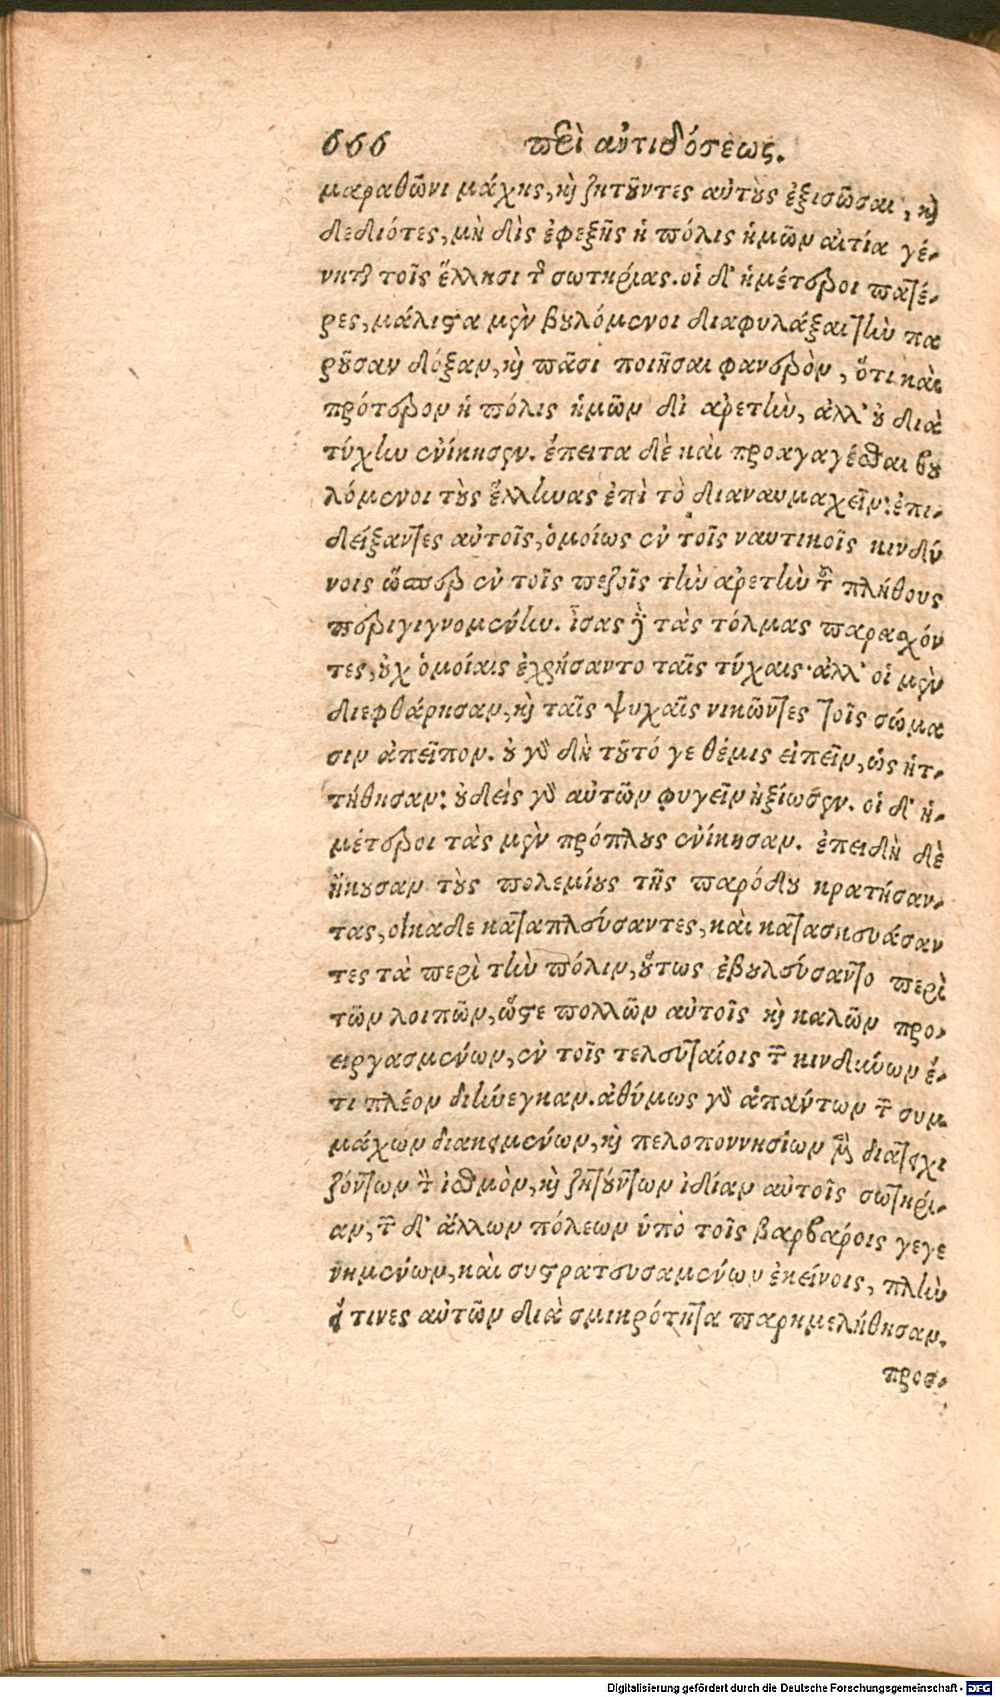 666 περὶ ἀντιδόσεως.
μαραθῶνι μάχης, καὶ ζητοῦντες αὐτοὺς ἐξισῶσαι, καὶ
δεδιότες, μὴ δὶς ἐφεξῆς ἡ πόλις ἡμῶν αἰτία γέ-
νηται τοῖς ἕλλησι τῆς σωτηρίας. οἱ δ' ἡμέτεροι πατέ-
ρες, μάλιστα μὲν βουλόμενοι διαφυλάξαι τὴν πα
ροῦσαν δόξαν, καὶ πᾶσι ποιῆσαι φανερὸν, ὅτι καὶ
πρότερον ἡ πόλις ἡμῶν δι ἀρετὴν, ἀλλ' οὐ διὰ
τύχην ἐνίκησεν. ἔπειτα δὲ καὶ προαγαγέσθαι βου
λόμενοι τοὺς ἕλληνας ἐπὶ τὸ διαναυμαχεῖν: ἐπι-
δείξαντες αὐτοῖς, ὁμοίως ἐν τοῖς ναυτικοῖς κινδύ
νοις ὥσπερ ἐν τοῖς πεζοῖς τὴν ἀρετὴν τοῦ πλήθους
περιγιγνομένην. ἴσας δὲ τὰς τόλμας παρασχόν
τες, οὐχ ὁμοίαις ἐχρήσαντο ταῖς τύχαις· ἀλλ' οἱ μὲν
διεφθάρησαν, καὶ ταῖς ψυχαῖς νικῶντες τοῖς σώμα
σιν ἀπεῖπον. οὐ γὰρ δὴ τοῦτό γε θέμις εἰπεῖν, ὡς ἡτ-
τήθησαν: οὐδεὶς γὰρ αὐτῶν φυγεῖν ἠξίωσεν. οἱ δ' ἡ-
μέτεροι τὰς μὲν πρόπλους ἐνίκησαν. ἐπειδὴ δὲ
ἤκουσαν τοὺς πολεμίους τῆς παρόδου κρατήσαν-
τας, οἴκαδε καταπλεύσαντες, καὶ κατασκευάσαν
τες τὰ περὶ τὴν πόλιν, οὕτως ἐβουλεύσαντο περὶ
τῶν λοιπῶν, ὥστε πολλῶν αὐτοῖς καὶ καλῶν προ-
ειργασμένων, ἐν τοῖς τελευταίοις τῶν κινδύνων ἔ-
τι πλέον διήνεγκαν. ἀθύμως γὰρ ἁπάντων τῶν συμ-
μάχων διακειμένων, καὶ πελοποννησίων μὲν διατειχι
ζόντων τὸν ἰσθμὸν, καὶ ζητούντων ἰδίαν αὑτοῖς σωτηρί-
αν, τῶν δ' ἄλλων πόλεων ὑπὸ τοῖς βαρβάροις γεγε
νημένων, καὶ συστρατευσαμένων ἐκείνοις, πλὴν
εἴ τινες αὐτῶν διὰ σμικρότητα παρημελήθησαν.
προσ-
Digitalisierung gefördert durch die Deutsche Forschungsgemeinschaft - DFG